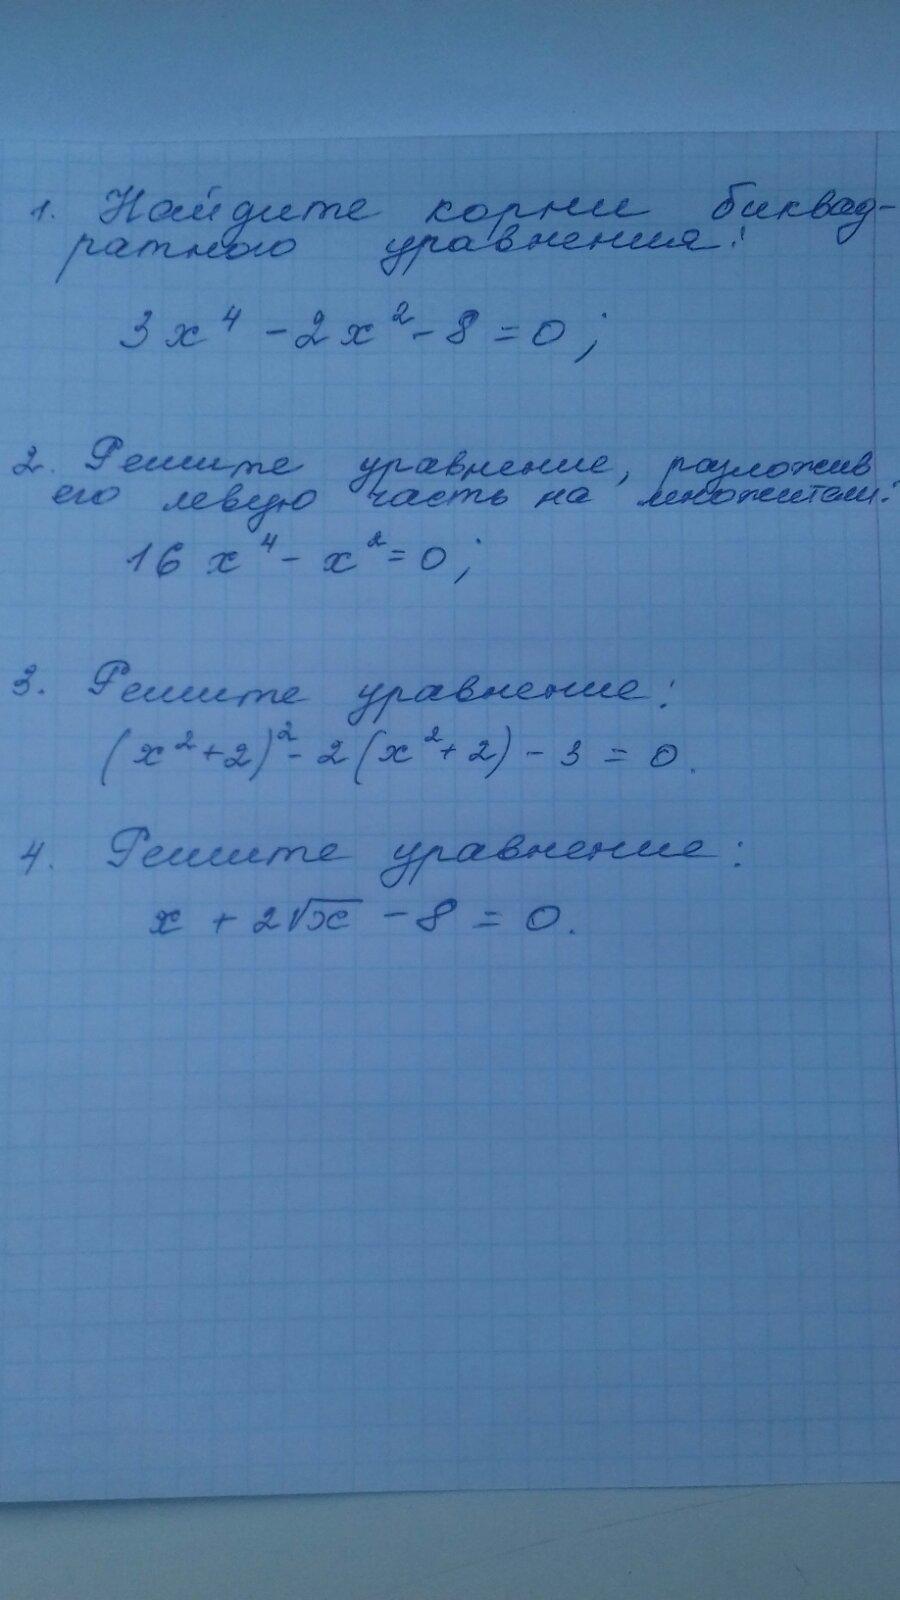 1. Найдите корни биквад-
ратного уравнения:
3x⁴ - 2x² - 8 = 0;
2. Решите уравнение, разложив
его левую часть на множители:
16x⁴ - x² = 0;
3. Решите уравнение:
(x² + 2)² - 2(x² + 2) - 3 = 0.
4. Решите уравнение:
x + 2√x - 8 = 0.